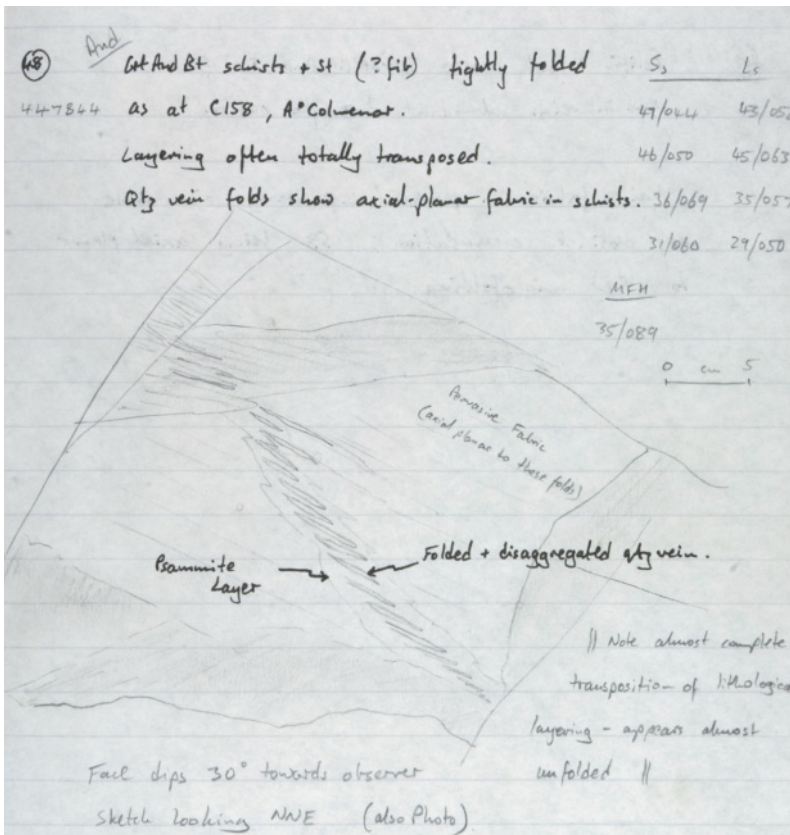 And
48 Grt And Bt schists + St (? fib) tightly folded Ss Ls
447844 as at C158, Aº Colmenar. 47/044 43/052
Layering often totally transposed. 46/050 45/063
Qtz vein folds show axial-planar fabric in schists. 36/069 35/057
31/060 29/050
MFH
35/089
0 cm 5
Pervasive Fabric
(axial planar to these folds)
Psammite
Layer
Folded + disaggregated qtz vein.
|| Note almost complete
transposition of lithologica
layering - appears almost
unfolded ||
Face dips 30° towards observer
Sketch looking NNE (also Photo)